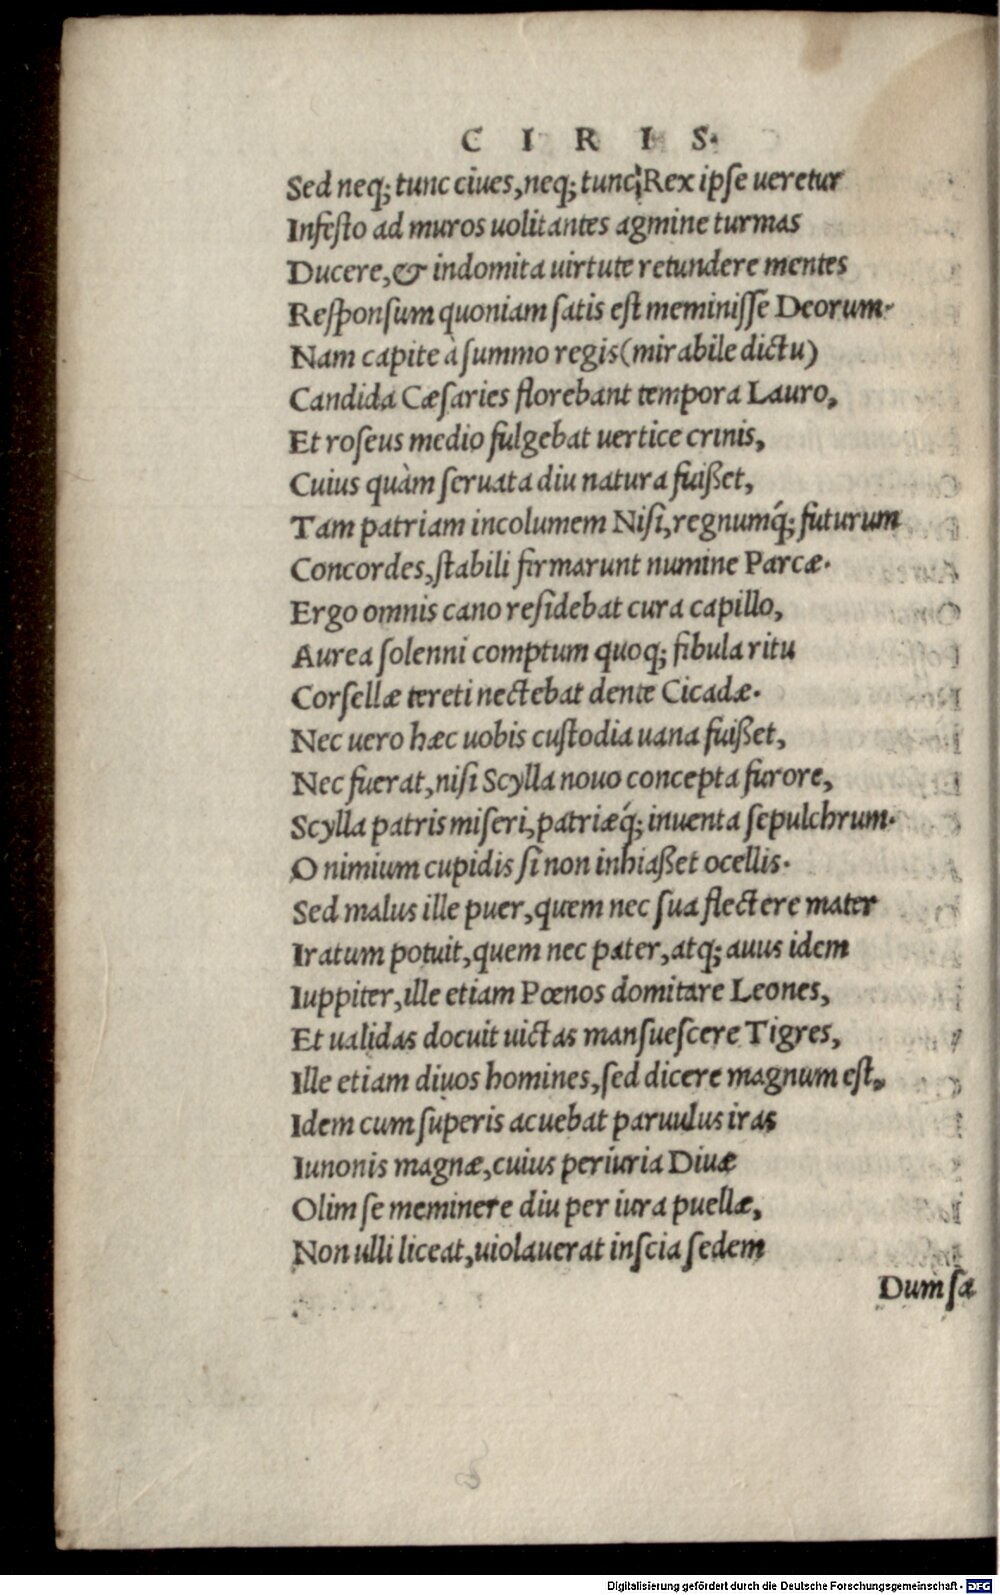 C I R I S.
Sed neq; tunc ciues, neq; tunc Rex ipſe ueretur
Infeſto ad muros uolitantes agmine turmas
Ducere, & indomita uirtute retundere mentes
Reſponſum quoniam ſatis eſt meminiſſe Deorum.
Nam capite à ſummo regis (mirabile dictu)
Candida Cæſaries florebant tempora Lauro,
Et roſeus medio fulgebat uertice crinis,
Cuius quàm ſeruata diu natura fuißet,
Tam patriam incolumem Niſi, regnumq́; futurum
Concordes, ſtabili firmarunt numine Parcæ.
Ergo omnis cano reſidebat cura capillo,
Aurea ſolenni comptum quoq; fibula ritu
Corſellæ tereti nectebat dente Cicadæ.
Nec uero hæc uobis cuſtodia uana fuißet,
Nec fuerat, niſi Scylla nouo concepta furore,
Scylla patris miſeri, patriæq́; inuenta ſepulchrum.
O nimium cupidis ſi non inhiaßet ocellis.
Sed malus ille puer, quem nec ſua flectere mater
Iratum potuit, quem nec pater, atq; auus idem
Iuppiter, ille etiam Pœnos domitare Leones,
Et ualidas docuit uictas manſueſcere Tigres,
Ille etiam diuos homines, ſed dicere magnum eſt,
Idem cum ſuperis acuebat paruulus iras
Iunonis magnæ, cuius periuria Diuæ
Olim ſe meminere diu per iura puellæ,
Non ulli liceat, uiolauerat inſcia ſedem
Dum ſæ
Digitalisierung gefördert durch die Deutsche Forschungsgemeinschaft - DFG